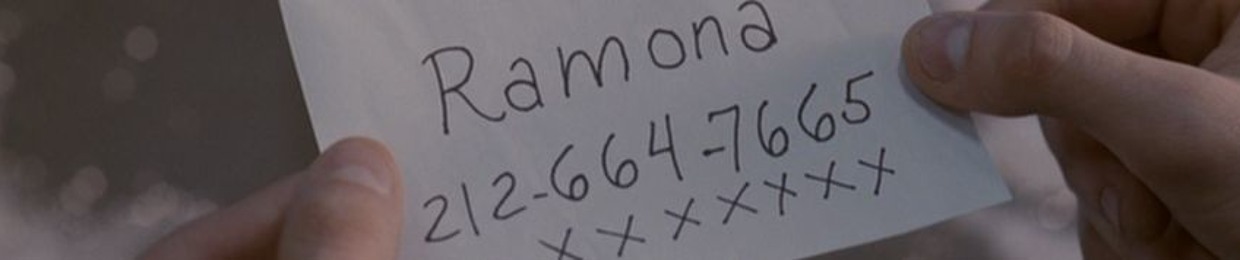 Ramona
212-664-7665
xxxxxxx